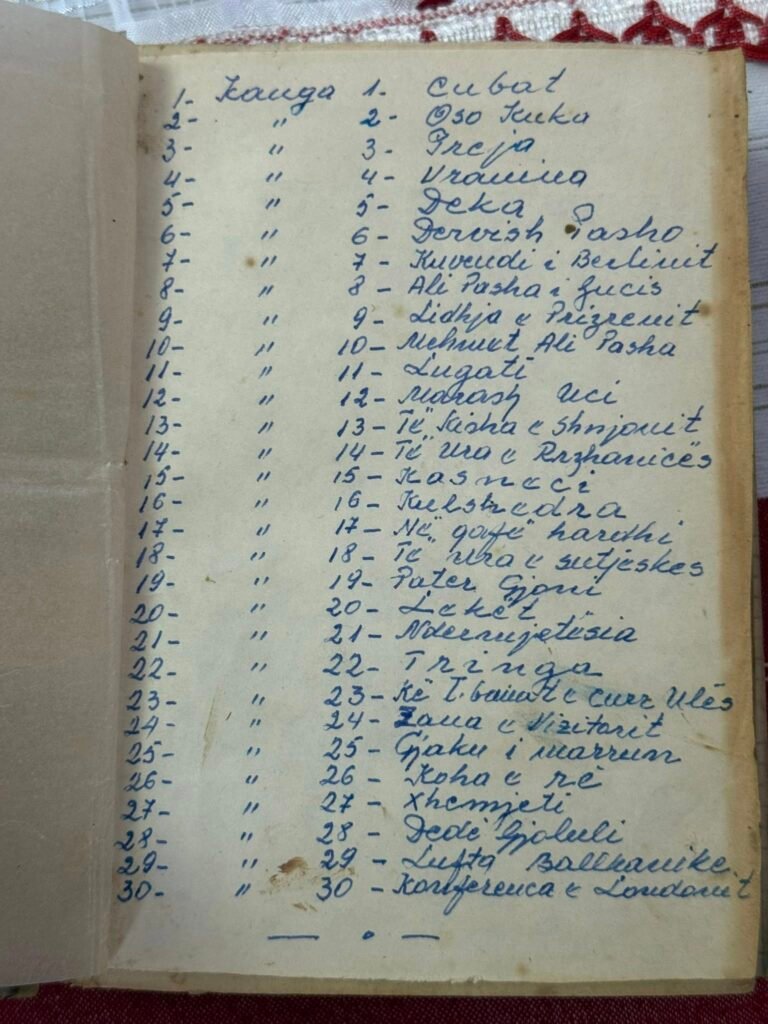 1- Kanga 1- Cubat
2- " 2- Oso Kuka
3- " 3- Preja
4- " 4- Vranina
5- " 5- Deka
6- " 6- Dervish Pasho
7- " 7- Kuvendi i Berlinit
8- " 8- Ali Pasha i Gucis
9- " 9- Lidhja e Prizrenit
10- " 10- Mehmet Ali Pasha
11- " 11- Lugati
12- " 12- Marash Uci
13- " 13- Të Kisha e Shnjonit
14- " 14- Të Ura e Rrzhanicës
15- " 15- Kasneci
16- " 16- Kulshedra
17- " 17- Në gafë hardhi
18- " 18- Të Ura e sutjeskes
19- " 19- Pater Gjoni
20- " 20- Lekët
21- " 21- Ndermjetësia
22- " 22- Tringa
23- " 23- Kë T. banat e Curr Ulës
24- " 24- Zana e Vizitorit
25- " 25- Gjaku i marrun
26- " 26- Koha e rë
27- " 27- Xhemjeti
28- " 28- Dedë Gjoluli
29- " 29- Lufta Ballkanike
30- " 30- Konferenca e Londonit